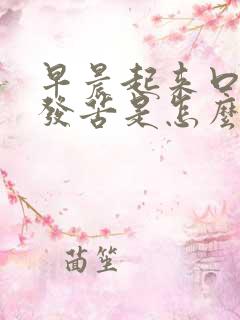 早晨起来口
發苦是怎麼
茵笙